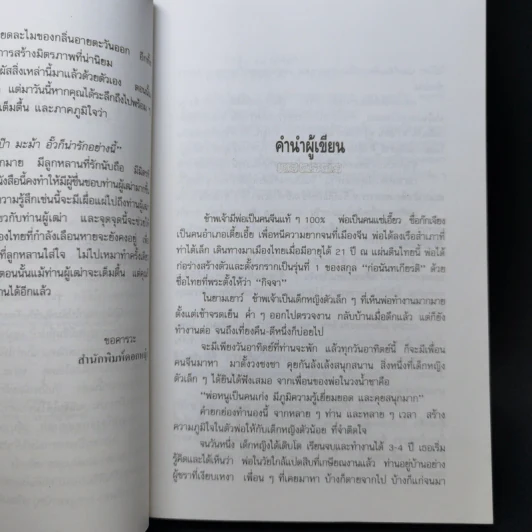 ยดละไมของกลิ่นอายตะวันออก อีกทั้ง
การสร้างมิตรภาพที่น่านิยม
ผัสสิ่งเหล่านี้มาแล้วด้วยตัวเอง ตอนนั้น
แต่มาวันนี้หากคุณได้ระลึกถึงไปพร้อม ๆ
เต็มตื้น และภาคภูมิใจว่า
ป๊า มะม้า อั๊วก็น่ารักอย่างนี้"
กมาย มีลูกหลานที่รักนับถือ
นังสือนี้คงทำให้มีผู้ชื่นชอบท่านผู้เฒ่ามากขึ้น
ความรู้สึกเช่นนี้จะมีเผื่อแผ่ไปถึงท่านผู้
ยวกับท่านผู้เฒ่า และจุดจุดนี้จะช่วย
องไทยที่กำลังเลือนหายจะยังคงอยู่
ที่ลูกหลานใส่ใจ ไม่ไปเหมาทำครั้งเดียว
ตอนนั้นแม้ท่านผู้เฒ่าจะเต็มตื้น แต่คุณ
านได้อีกแล้ว
ขอคารวะ
สำนักพิมพ์ดอกหญ้า
คำนำผู้เขียน
ข้าพเจ้ามีพ่อเป็นคนจีนแท้ ๆ 100% พ่อเป็นคนแซ่เฮี้ยว ชื่อกักเจียง
เป็นคนอำเภอเตี้ยเอี้ย เพื่อหนีความยากจนที่เมืองจีน พ่อได้ลงเรือสำเภาที่
ทำใต้เล็ก เดินทางมาเมืองไทยเมื่อมีอายุได้ 21 ปี ณ แผ่นดินไทยนี้ พ่อได้
ก่อร่างสร้างตัวและตั้งรกรากเป็นรุ่นที่ 1 ของสกุล "ก่อนันทเกียรติ" ด้วย
ชื่อไทยที่พระตั้งให้ว่า "กิจจา"
ในยามเยาว์ ข้าพเจ้าเป็นเด็กหญิงตัวเล็ก ๆ ที่เห็นพ่อทำงานมากมาย
ตั้งแต่เช้าจรดเย็น ค่ำ ๆ ออกไปตรวจงาน กลับบ้านเมื่อดึกแล้ว แต่ก็ยัง
ทำงานต่อ จนถึงเที่ยงคืน-ตีหนึ่งก็บ่อยไป
จะมีเพียงวันอาทิตย์ที่ท่านจะพัก แล้วทุกวันอาทิตย์นี้ ก็จะมีเพื่อน
คนจีนมาหา มาตั้งวงชงชา คุยกันล้งเล้งสนุกสนาน สิ่งหนึ่งที่เด็กหญิง
ตัวเล็ก ๆ ได้ยินได้ฟังเสมอ จากเพื่อนของพ่อในวงน้ำชาคือ
"พ่อหนูเป็นคนเก่ง มีภูมิความรู้เยี่ยมยอด และคุยสนุกมาก"
คำยกย่องทำนองนี้ จากหลาย ๆ ท่าน และหลาย ๆ เวลา สร้าง
ความภูมิใจในตัวพ่อให้กับเด็กหญิงตัวน้อย ที่จำติดใจ
จนวันหนึ่ง เด็กหญิงได้เติบโต เรียนจบและทำงานได้ 3-4 ปี เธอเริ่ม
รู้คิดและได้เห็นว่า พ่อในวัยใกล้แปดสิบที่เกษียณงานแล้ว ท่านอยู่บ้านอย่าง
ผู้ชราที่เงียบเหงา เพื่อน ๆ ที่เคยมาหา บ้างก็ตายจากไป บ้างก็แก่จนมา